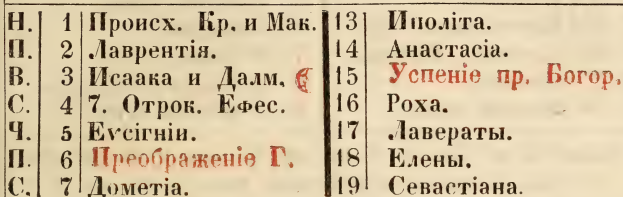 Н. 1 Происх. Кр. и Мак. 13 Иполіта.
П. 2 Лаврентія. 14 Анастасіа.
В. 3 Исаака и Далм. 15 Успеніе пр. Богор.
С. 4 7. Отрок. Ефес. 16 Роха.
Ч. 5 Еѵсігніи. 17 Лавераты.
П. 6 Преображеніе Г. 18 Елены.
С. 7 Дометіа. 19 Севастіана.